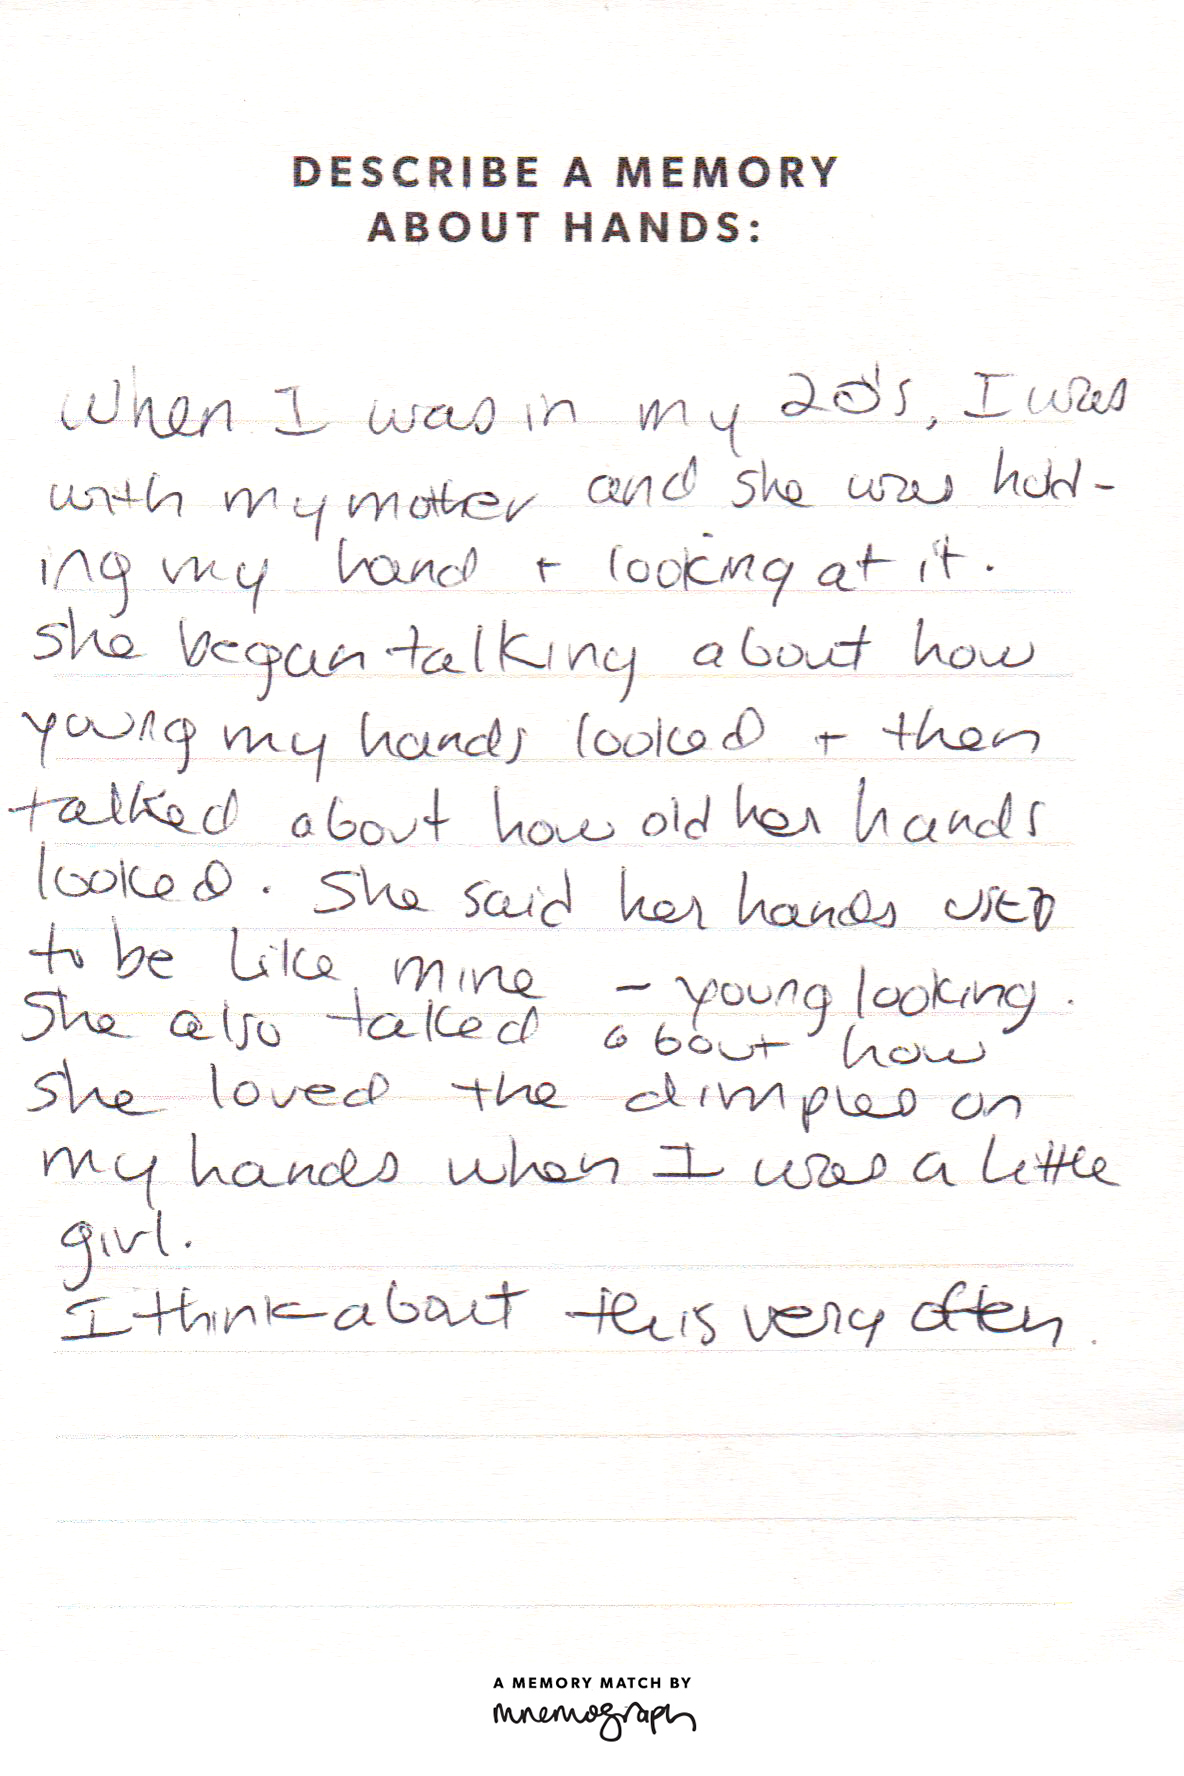 DESCRIBE A MEMORY
ABOUT HANDS:
When I was in my 20's, I was
with my mother and she was hold-
ing my hand + looking at it.
She began talking about how
young my hands looked + then
talked about how old her hands
looked. She said her hands used
to be like mine – young looking.
She also talked about how
she loved the dimples on
my hands when I was a little
girl.
I think about this very often.
A MEMORY MATCH BY
mnemograph